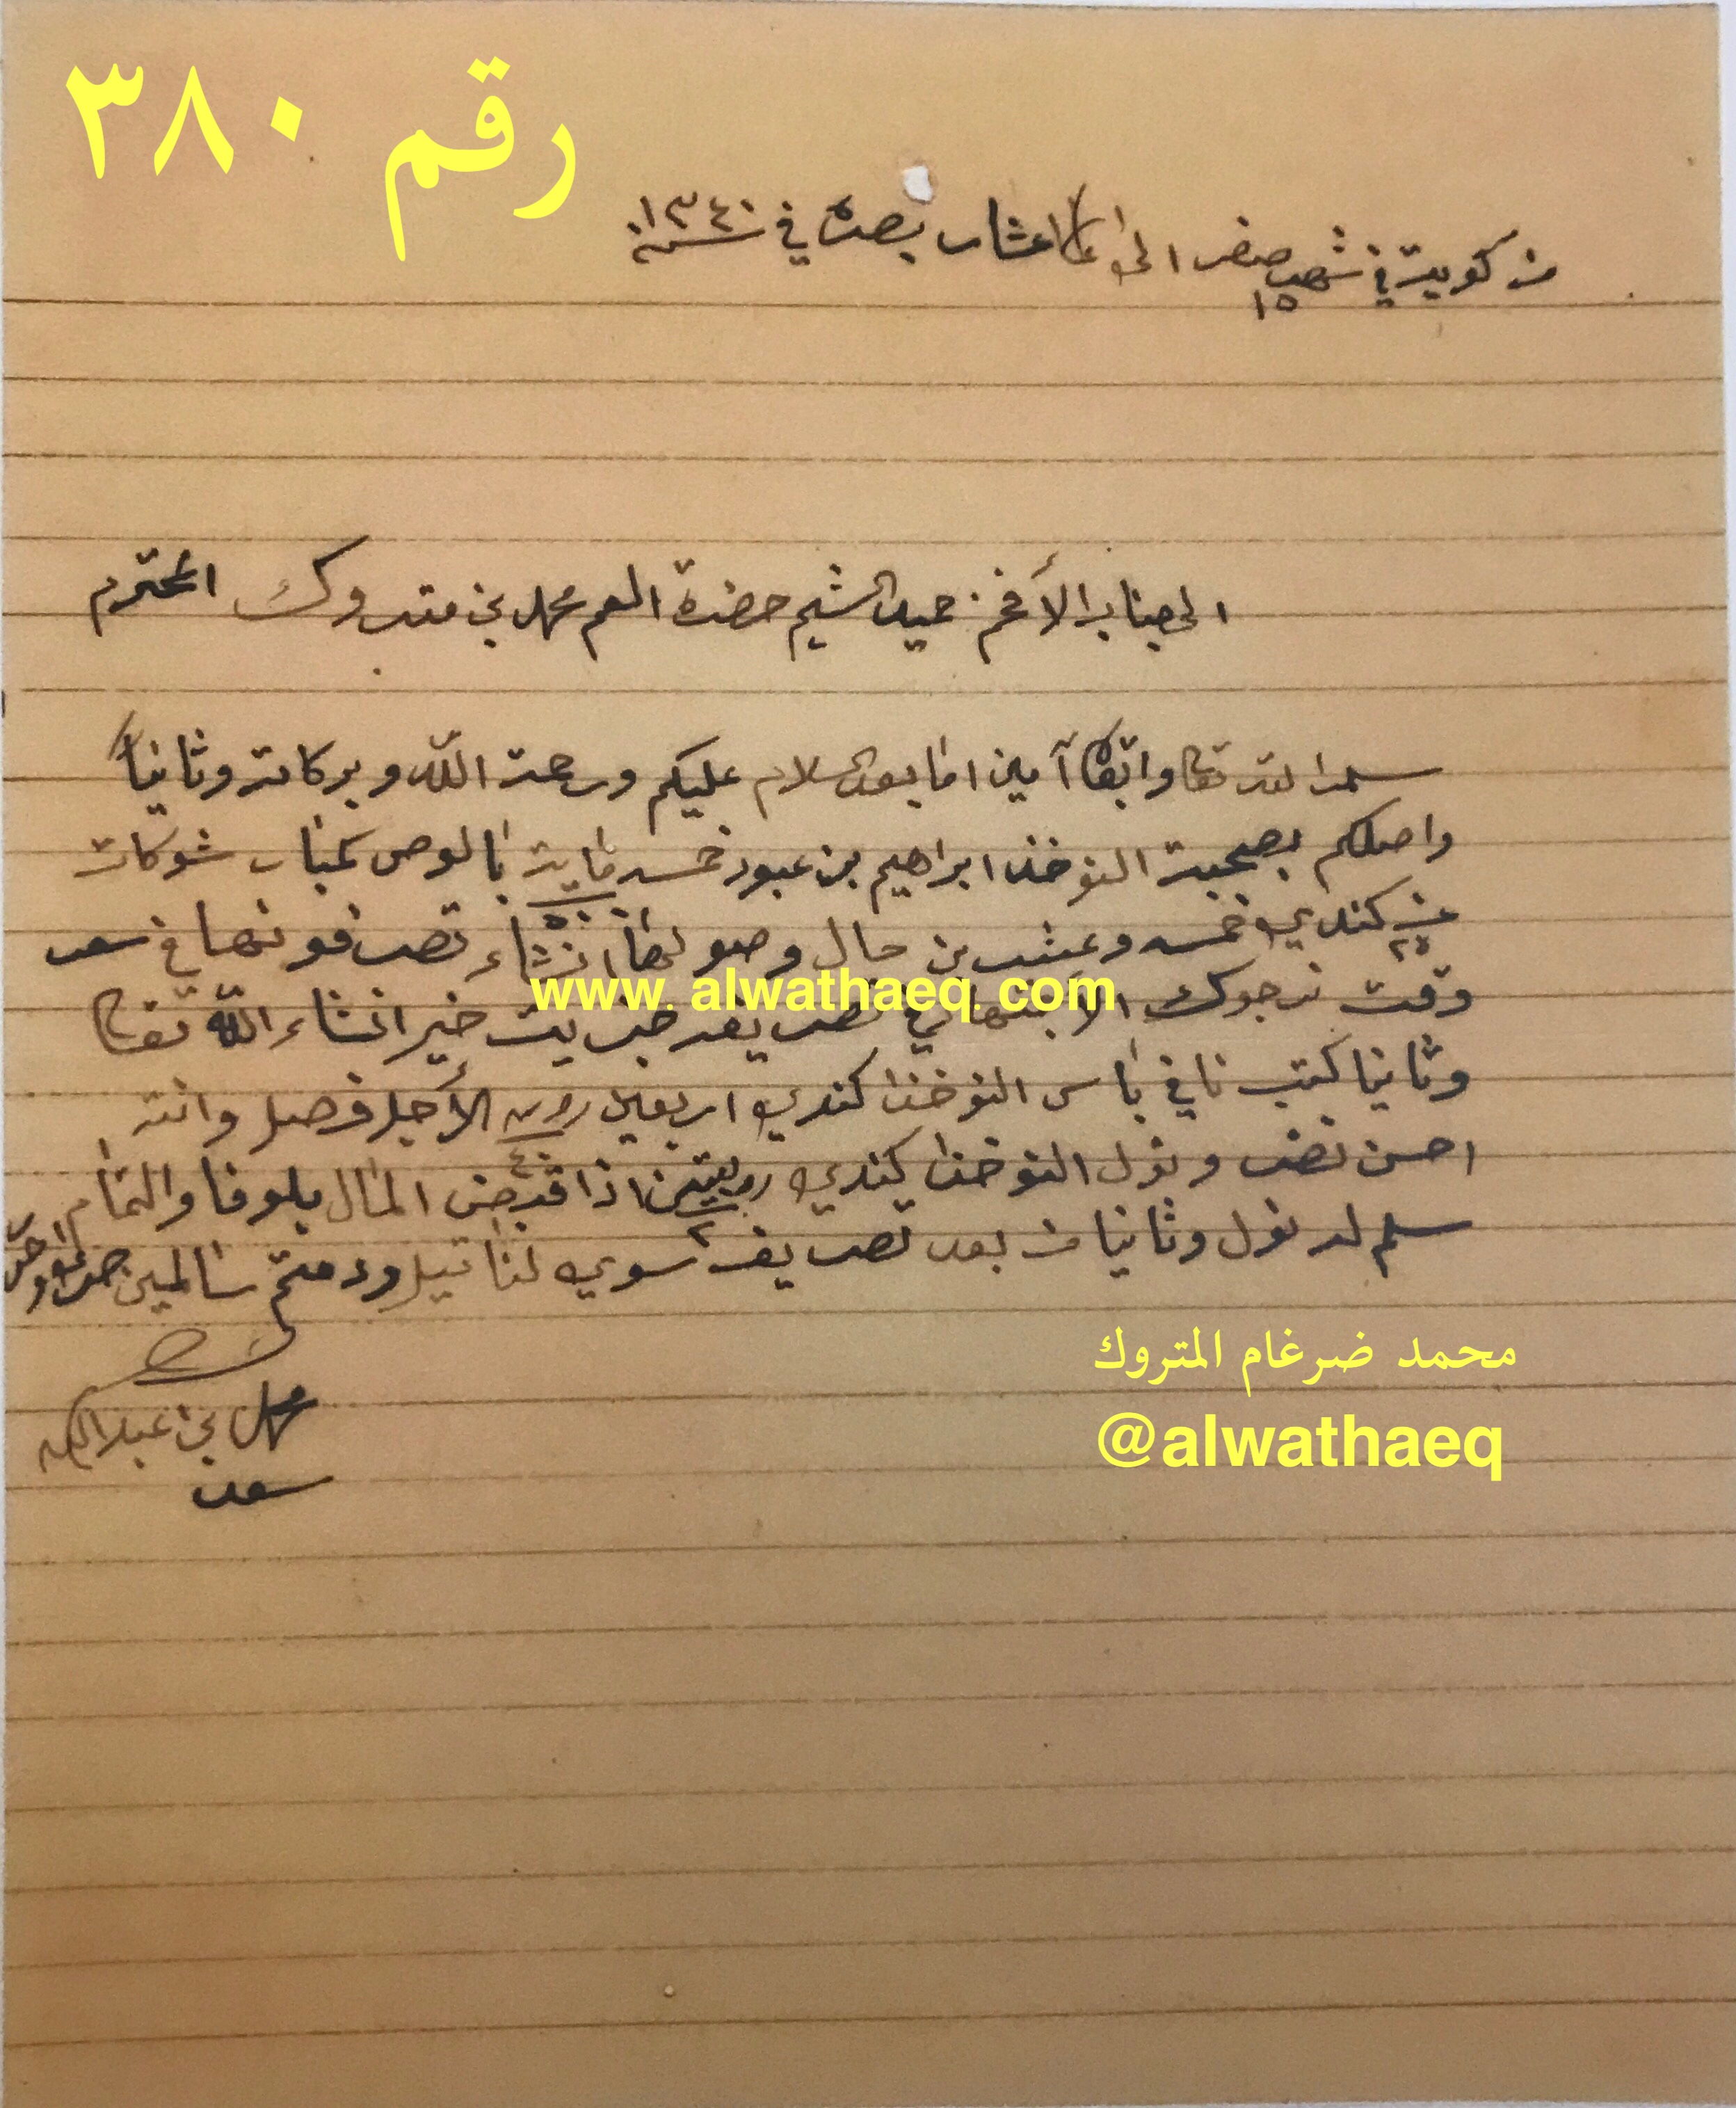 رقم ٣٨٠
من كويت في شهر صفر الى عشار بصره في سنة ١٣٤٠
١٥
الى جناب الأفخم حميد الشيم حضرة العم محمد بن متروك المحترم
سلمه الله تعالى وابقاه آمين اما بعد السلام عليكم ورحمة الله وبركاته وثانياً
واصلكم بصحبة النوخذا ابراهيم بن عبود خمسماية بالوص كمبار شوكات
٥٠٠
عن كندي خمسه وعشرين حال وصولها انشاء تصرفونها في سعر
٢٥
وقت نرجوك الاجتهاد في تصريفه خير انشاء الله تعالى
وثانيا كتبنا في باس النوخذا كندي اربعين الأجل فصل وانته
٤٠
احسن نضر ونول النوخذا كندي ربيتين اذا قبض المال بلوفا والتمام
٢
سلم له نول وثانيا من بعد تصريفه سوي لنا تيل ودمتم سالمين
محمد بن عبدالله
سعد
www.alwathaeq.com
محمد ضرغام المتروك
@alwathaeq